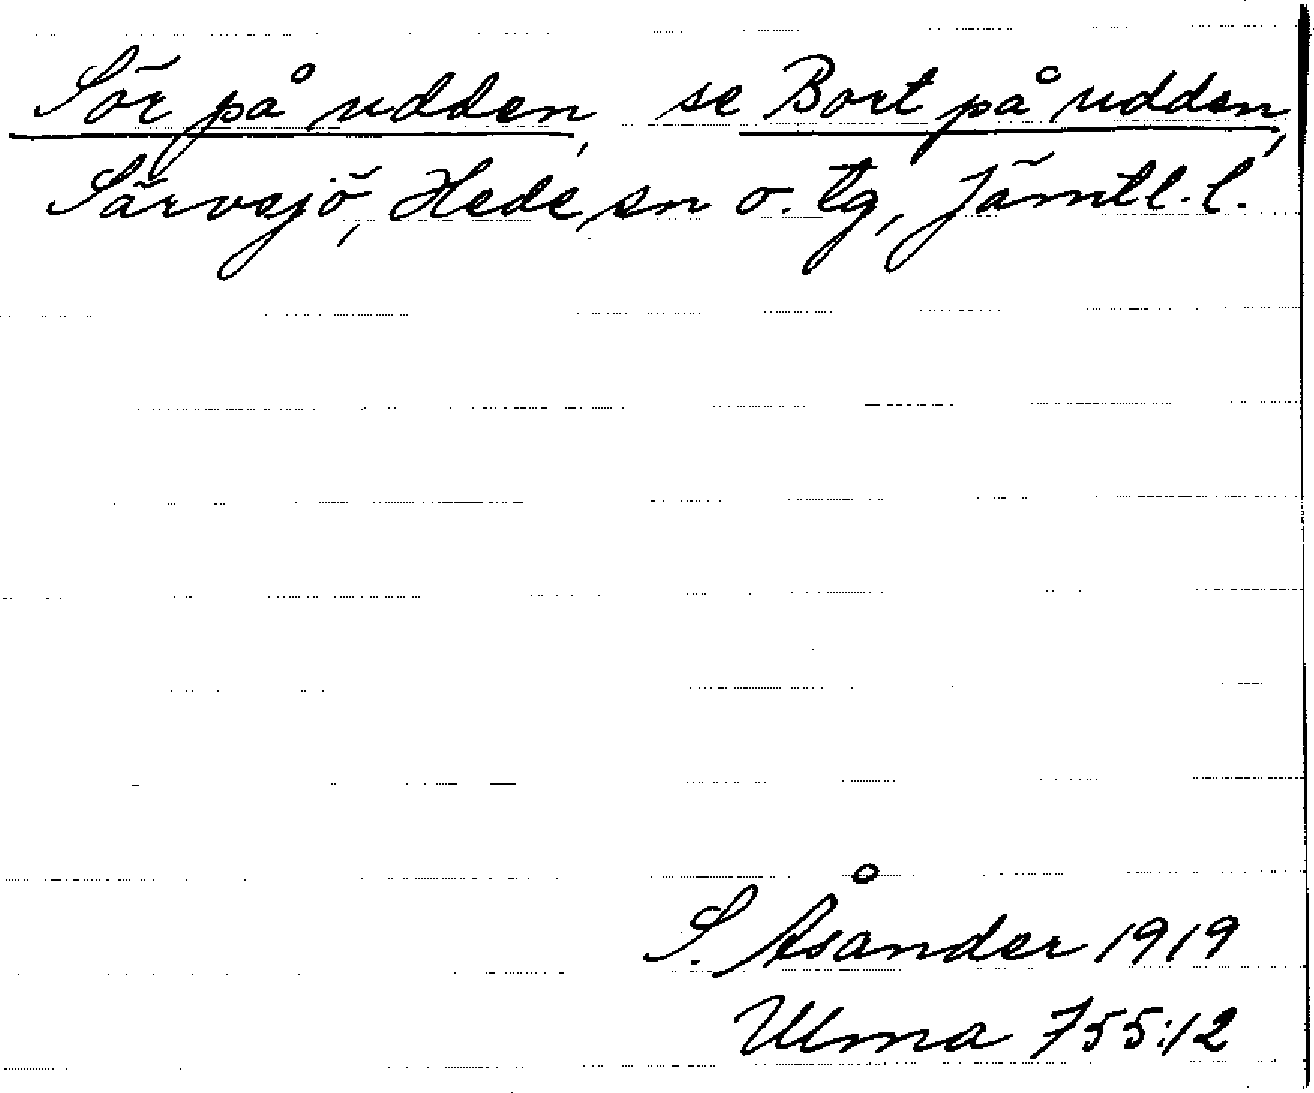 Sör på udden, se Bort på udden,
Särvsjö, Hede, sn o. tg, Jämtl. l.
S. Åsander 1919
Ulma 755:12